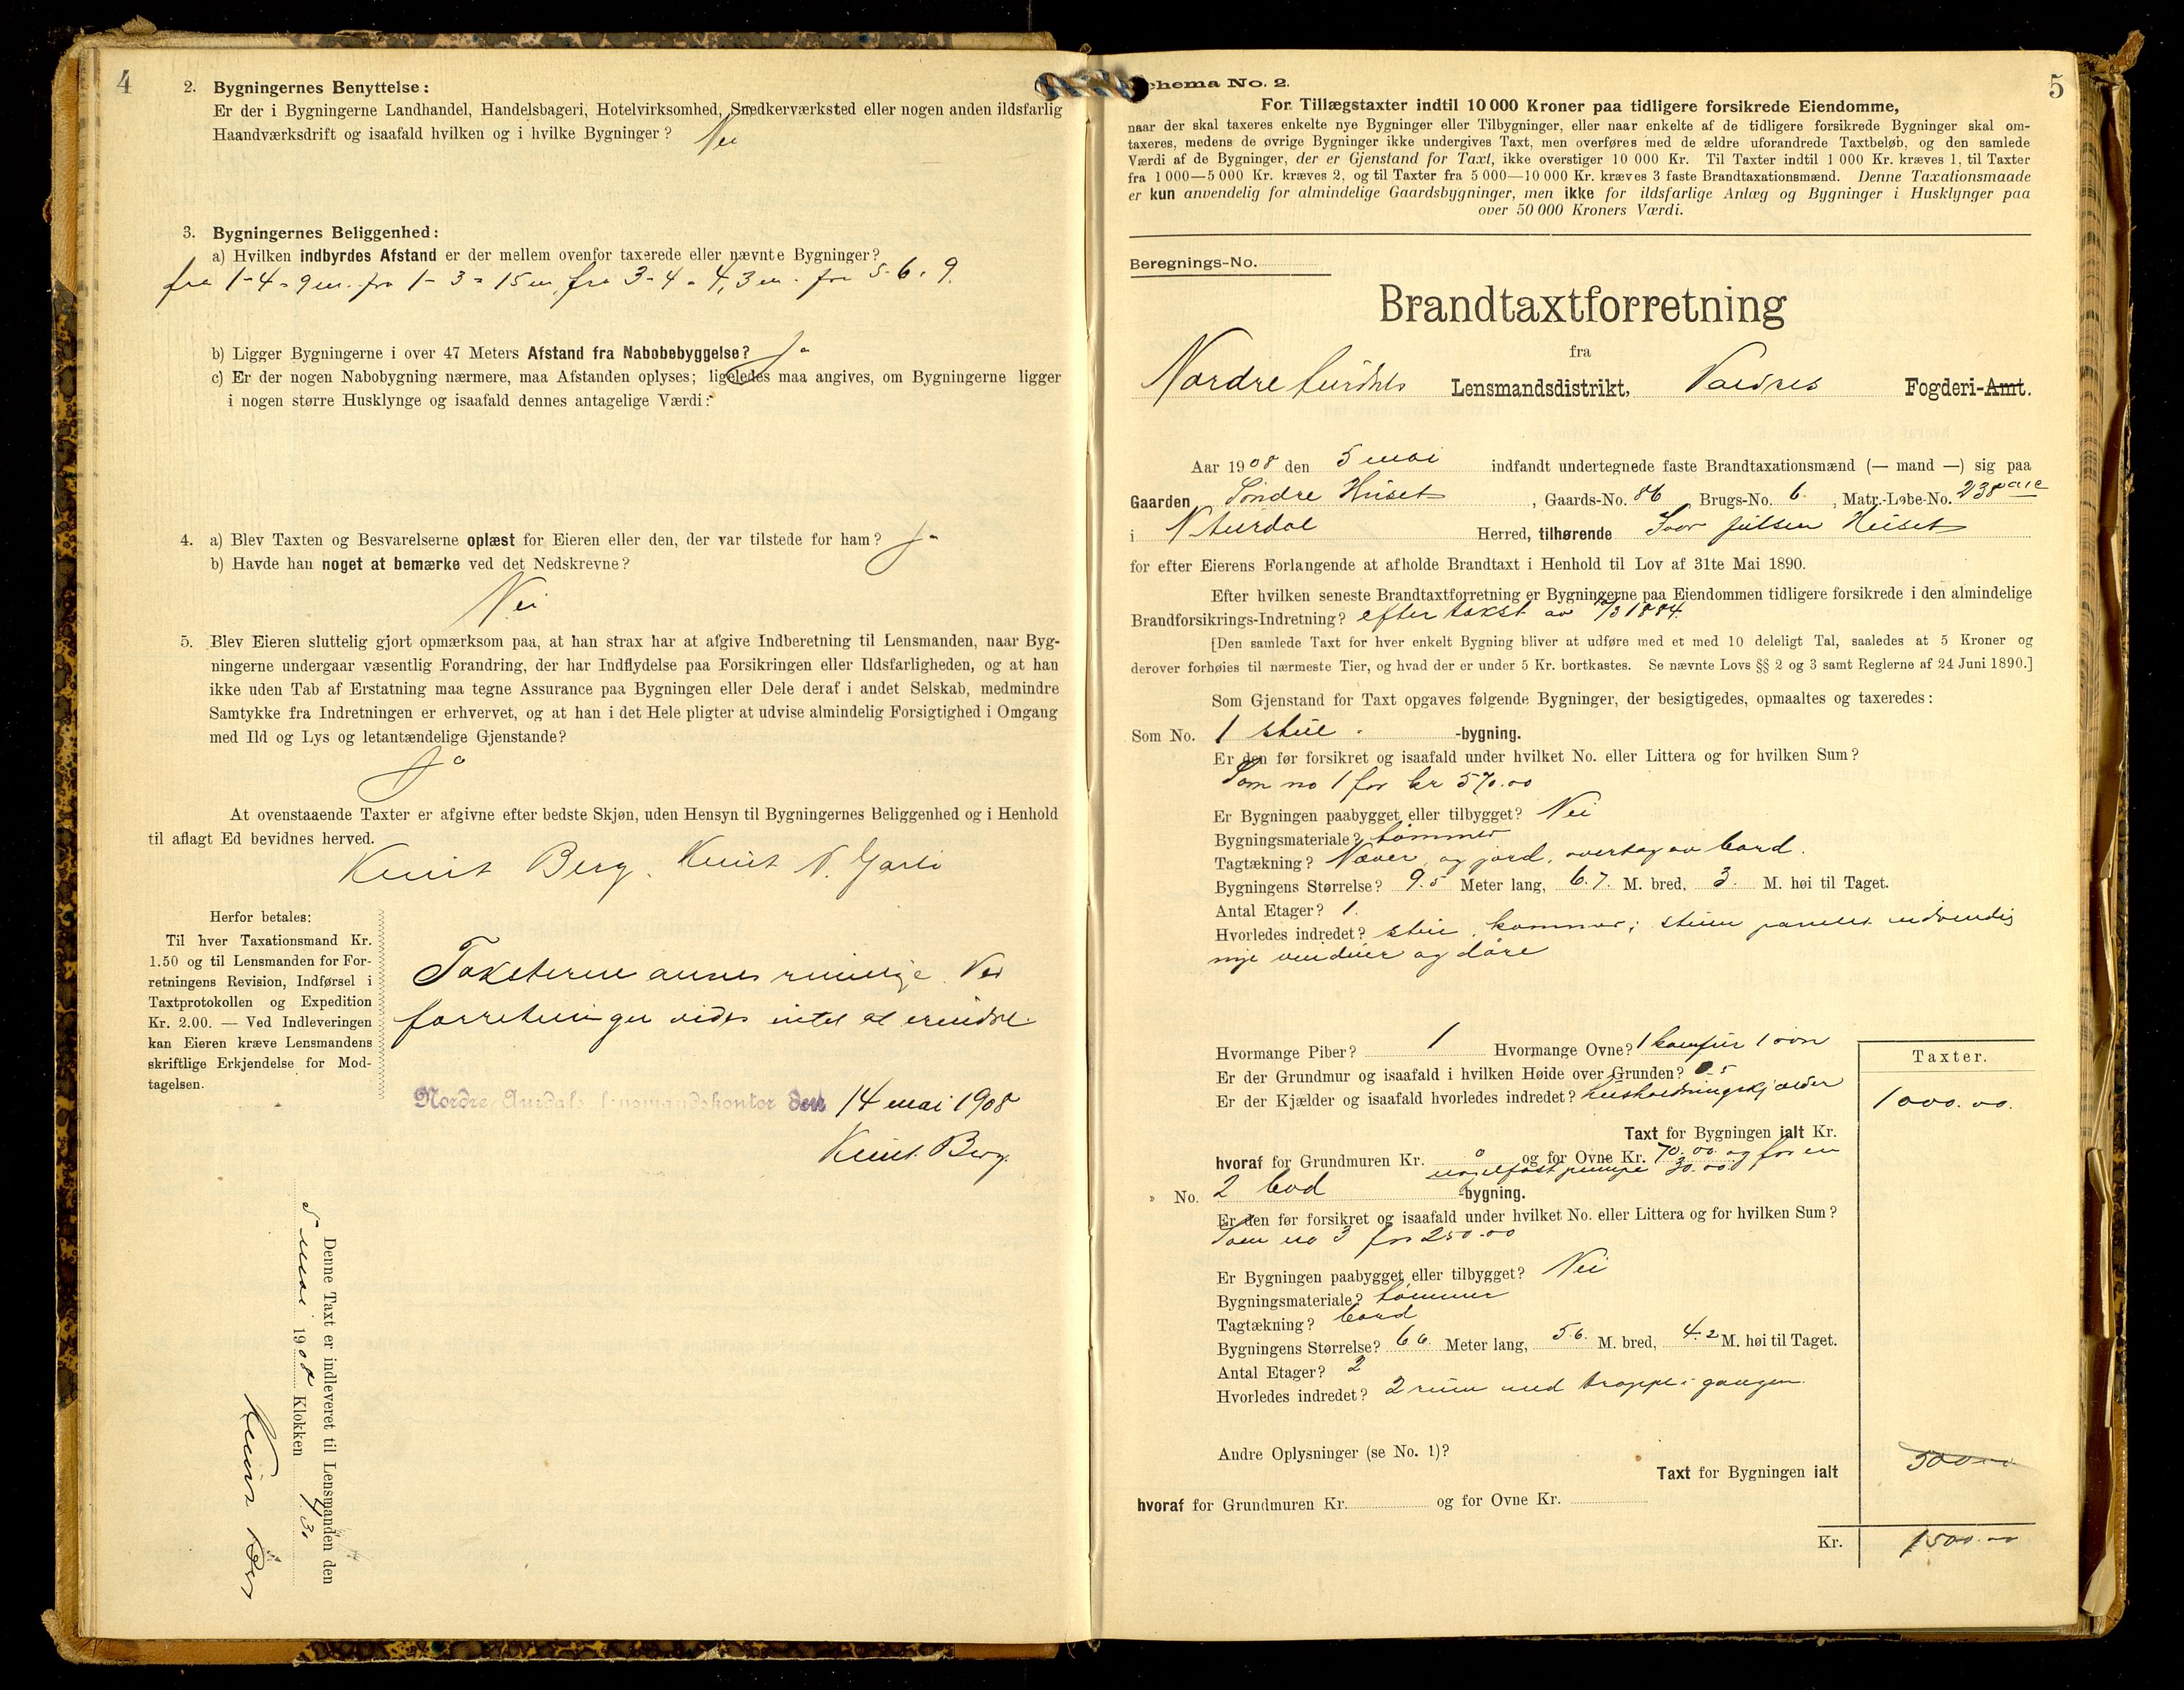 4
2. Bygningernes Benyttelse:
Er der i Bygningerne Landhandel, Handelsbageri, Hotelvirksomhed, Snedkerværksted eller nogen anden ildsfarlig
Haandværksdrift og isaafald hvilken og i hvilke Bygninger? Nei
3. Bygningernes Beliggenhed:
a) Hvilken indbyrdes Afstand er der mellem ovenfor taxerede eller nævnte Bygninger?
fra 1-4 = 9 m. fra 1-3 = 15 m, fra 3-4 = 4,3 m. fra 5-6 = 9.
b) Ligger Bygningerne i over 47 Meters Afstand fra Nabobebyggelse? Ja
c) Er der nogen Nabobygning nærmere, maa Afstanden oplyses; ligeledes maa angives, om Bygningerne ligger
i nogen større Husklynge og isaafald dennes antagelige Værdi:
4. a) Blev Taxten og Besvarelserne oplæst for Eieren eller den, der var tilstede for ham? Ja
b) Havde han noget at bemærke ved det Nedskrevne?
Nei
5. Blev Eieren sluttelig gjort opmærksom paa, at han strax har at afgive Indberetning til Lensmanden, naar Byg-
ningerne undergaar væsentlig Forandring, der har Indflydelse paa Forsikringen eller Ildsfarligheden, og at han
ikke uden Tab af Erstatning maa tegne Assurance paa Bygningen eller Dele deraf i andet Selskab, medmindre
Samtykke fra Indretningen er erhvervet, og at han i det Hele pligter at udvise almindelig Forsigtighed i Omgang
med Ild og Lys og letantændelige Gjenstande?
Ja
At ovenstaaende Taxter er afgivne efter bedste Skjøn, uden Hensyn til Bygningernes Beliggenhed og i Henhold
til aflagt Ed bevidnes herved.
Knut Berg. Knut N. Garli
Herfor betales:
Til hver Taxationsmand Kr.
1.50 og til Lensmanden for For-
retningens Revision, Indførsel i
Taxtprotokollen og Expedition
Kr. 2.00. — Ved Indleveringen
kan Eieren kræve Lensmandens
skriftlige Erkjendelse for Mod-
tagelsen.
Taksterne annes rimelige. Ved
forretningen vides intet at erindre.
Nordre Aurdals lensmandskontor den 14 mai 1908
Knut Berg.
Denne Taxt er indleveret til Lensmanden den
5 mai 1908 Klokken 4.30
Knut Berg
5
Schema No. 2.
For Tillægstaxter indtil 10 000 Kroner paa tidligere forsikrede Eiendomme,
naar der skal taxeres enkelte nye Bygninger eller Tilbygninger, eller naar enkelte af de tidligere forsikrede Bygninger skal om-
taxeres, medens de øvrige Bygninger ikke undergives Taxt, men overføres med de ældre uforandrede Taxtbeløb, og den samlede
Værdi af de Bygninger, der er Gjenstand for Taxt, ikke overstiger 10 000 Kr. Til Taxter indtil 1 000 Kr. kræves 1, til Taxter
fra 1 000—5 000 Kr. kræves 2, og til Taxter fra 5 000—10 000 Kr. kræves 3 faste Brandtaxationsmænd. Denne Taxationsmaade
er kun anvendelig for almindelige Gaardsbygninger, men ikke for ildsfarlige Anlæg og Bygninger i Husklynger paa
over 50 000 Kroners Værdi.
Beregnings-No.
Brandtaxtforretning
fra
Nordre Aurdals Lensmandsdistrikt, Valdres Fogderi-Amt.
Aar 1908 den 5 mai indfandt undertegnede faste Brandtaxationsmænd (— mand —) sig paa
Gaarden Søndre Huset, Gaards-No. 86 Brugs-No. 6, Matr.-Løbe-No. 238
i N Aurdal Herred, tilhørende Iver Julsen Huset
for efter Eierens Forlangende at afholde Brandtaxt i Henhold til Lov af 31te Mai 1890.
Efter hvilken seneste Brandtaxtforretning er Bygningerne paa Eiendommen tidligere forsikrede i den almindelige
Brandforsikrings-Indretning? efter takst av /3 1884.
[Den samlede Taxt for hver enkelt Bygning bliver at udføre med et med 10 deleligt Tal, saaledes at 5 Kroner og
derover forhøies til nærmeste Tier, og hvad der er under 5 Kr. bortkastes. Se nævnte Lovs §§ 2 og 3 samt Reglerne af 24 Juni 1890.]
Som Gjenstand for Taxt opgaves følgende Bygninger, der besigtigedes, opmaaltes og taxeredes:
Som No. 1 stue -bygning.
Er den før forsikret og isaafald under hvilket No. eller Littera og for hvilken Sum?
Som no 1 for kr 570.00
Er Bygningen paabygget eller tilbygget? Nei
Bygningsmateriale? tømmer
Tagtækning? Næver og jord, overtag av bord.
Bygningens Størrelse? 9.5 Meter lang, 6.7. M. bred, 3. M. høi til Taget.
Antal Etager? 1.
Hvorledes indredet? stue, kammer; stuen panelet indvendig
nye vinduer og døre
Hvormange Piber? 1 Hvormange Ovne? 1 komfur 1 ovn
Er der Grundmur og isaafald i hvilken Høide over Grunden? 0.5
Er der Kjælder og isaafald hvorledes indredet? Husholdningskjælder
Taxter.
1000.00.
Taxt for Bygningen ialt Kr.
hvoraf for Grundmuren Kr. 0 og for Ovne Kr. 70.00 og for en
nagelfast pumpe 30.00
» No. 2 bod -bygning.
Er den før forsikret og isaafald under hvilket No. eller Littera og for hvilken Sum?
Som no 3 for 250.00
Er Bygningen paabygget eller tilbygget? Nei
Bygningsmateriale? tømmer
Tagtækning? bord
Bygningens Størrelse? 6.6. Meter lang, 5.6. M. bred, 4.2 M. høi til Taget.
Antal Etager? 2
Hvorledes indredet? 2 rum med trappe i gangen.
Andre Oplysninger (se No. 1)?
Taxt for Bygningen ialt 500.00
hvoraf for Grundmuren Kr. og for Ovne Kr.
Kr. 1500.00